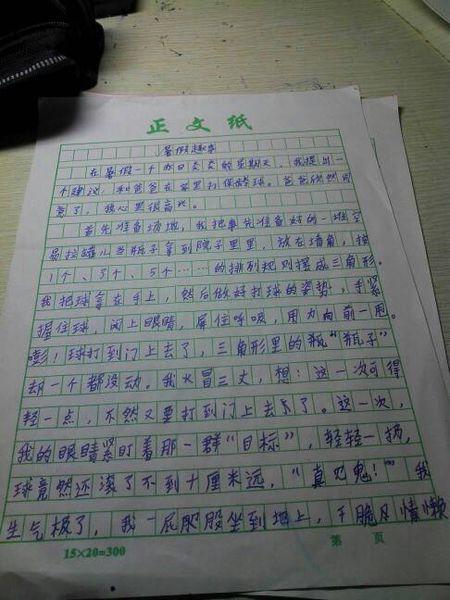 正文纸
暑假趣事
在暑假一个办日炎炎的星期天，我提出一
个建议：和爸爸在家里打保龄球。爸爸欣然同
意了，我心里很高兴。
首先准备场地，我把事先准备好的一堆空
易拉罐儿当瓶子拿到院子里里，放在墙角，按
1个、3个、5个……的排列规则摆成三角形。
我把球拿在手上，然后做好打球的姿势，手紧
握住球，闭上眼睛，屏住呼吸，用力向前一甩。
嘭！球打到门上去了，三角形里的瓶“瓶子”
却一个都没动。我火冒三丈，想：这一次可得
轻一点，不然又要打到门上去了。这一次，
我的眼睛紧盯着那一群“目标”，轻轻一扔，
球竟然还滚了不到十厘米远，“真见鬼！”我
生气极了，我一屁股坐到地上，干脆
15×20=300
第 页